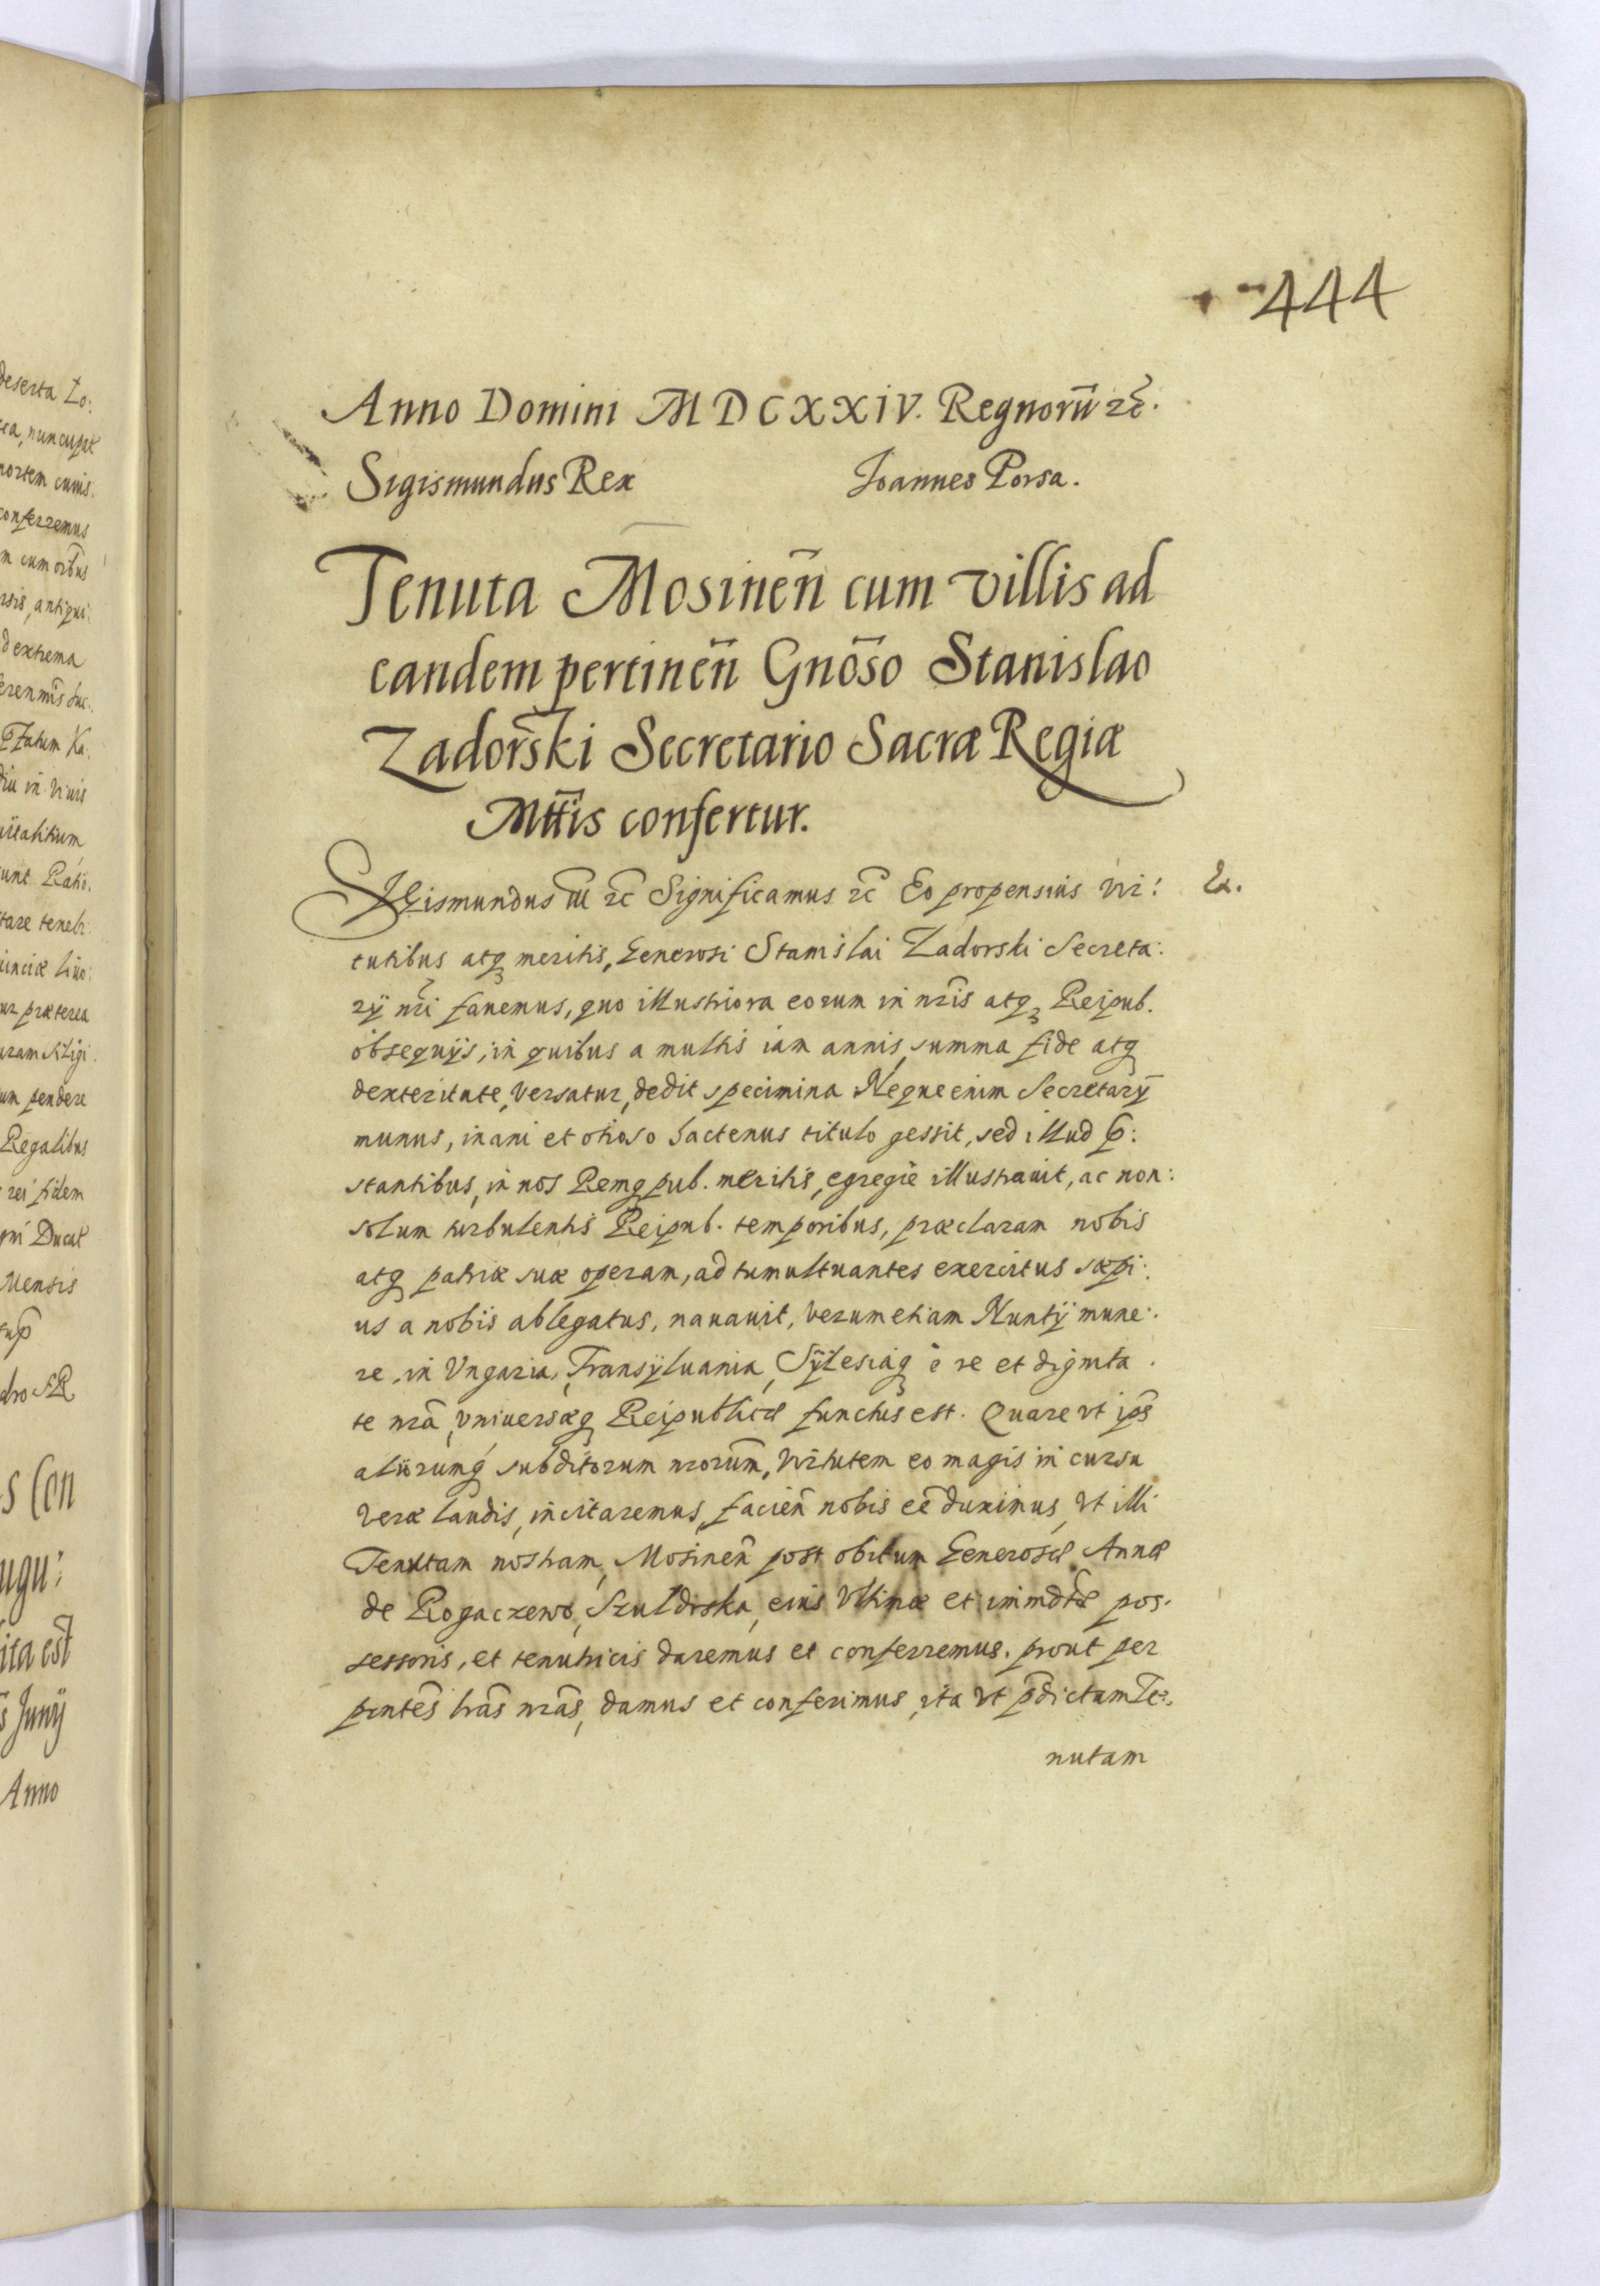 444
Anno Domini MDCXXIV. Regnorū ꝛc̄.
Sigismundus Rex Joannes Porsa.
Tenuta Mosineñ cum villis ad
eandem pertineñ Gnōso Stanislao
Zadorski Secretario Sacræ Regiæ
Mttis confertur.
Sigismundus III ꝛc̄ Significamus ꝛc̄ Eo propensius vir: Ex.
tutibus atq meritis, Generosi Stanislai Zadorski Secreta:
rij nr̄i fauemus, quo illustriora eorum in nr̄is atq Reipub.
obsequijs, in quibus a multis iam annis summa fide atq
dexteritate, versatur, dedit specimina Neque enim Secretarij
munus, inani et otioso hactenus titulo gessit, sed illud p̄:
stantibus, in nos Remq pub. meritis, egregiè illustrauit, ac non:
solum turbulentis Reipub. temporibus, præclaram nobis
atq patriæ suæ operam, ad tumultuantes exercitus sæpi:
us a nobis ablegatus, nauauit, verumetiam Nuntij mune:
re, in Vngaria, Transyluania, Sylesiaq è re et dignita
te nr̄a, vniuersæq Reipublicæ functus est. Quare vt ip̄s
aliorumq́ subditorum nrorum̄, virtutem eo magis in cursu
veræ laudis, incitaremus, facieñ nobis eē duximus, vt illi
Tenutam nostram, Mosineñ post obitum Generosæ Annæ
de Rogaczewo, Szuldrska, eius vltimæ et immdtæ pos:
sessoris, et tenutricis daremus et conferremus. prout per
pntēs lrās nrās, damus et conferimus, ita vt p̄dictam Te:
nutam
deserta Lo:
conferremus
d extrema
in viuis
Rati:
pendere
Regalibus
fidem
Ducat
s Con
ita est̄
Junij
Anno